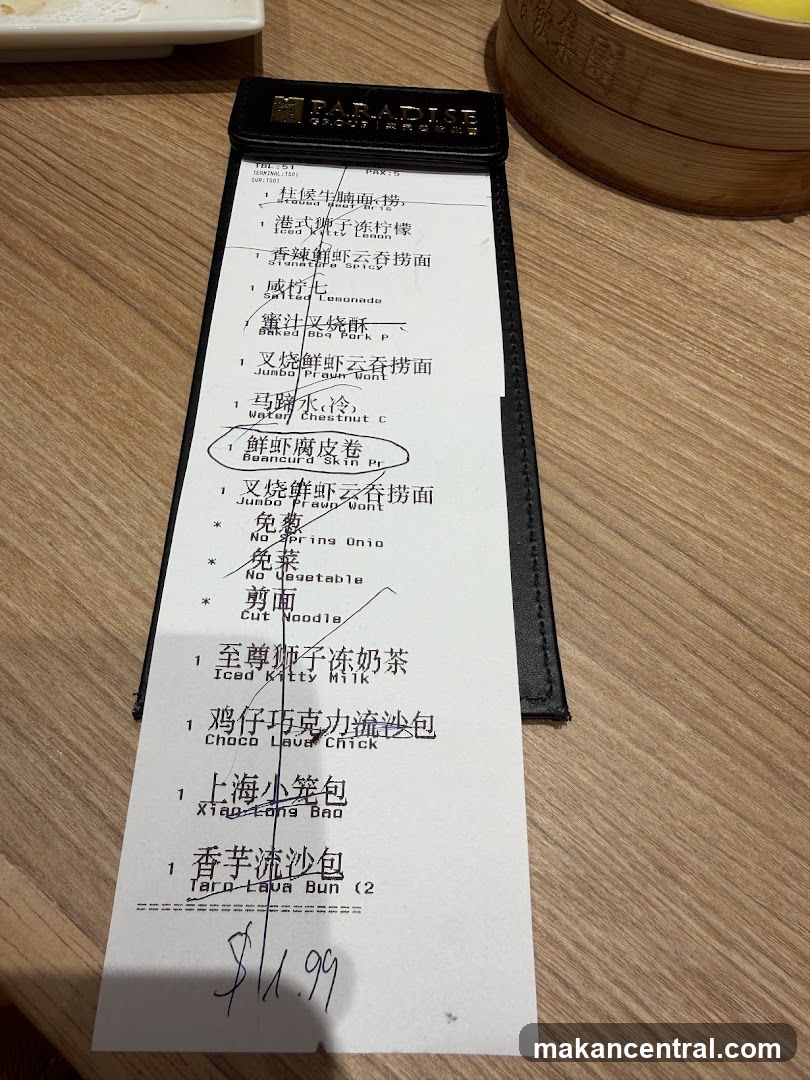 PARADISE
GROUP
TBL:51 PAX:5
TERMINAL:TS01
SVR:TS01
1 柱候牛腩面(捞)
Stewed Beef Bris
1 港式狮子冻柠檬
Iced Kitty Lemon
1 香辣鲜虾云吞捞面
Signature Spicy
1 咸柠七
Salted Lemonade
1 蜜汁叉烧酥
Baked Bbq Pork P
1 叉烧鲜虾云吞捞面
Jumbo Prawn Wont
1 马蹄水(冷)
Water Chestnut C
1 鲜虾腐皮卷
Beancurd Skin Pr
1 叉烧鲜虾云吞捞面
Jumbo Prawn Wont
* 免葱
No Spring Onio
* 免菜
No Vegetable
* 剪面
Cut Noodle
1 至尊狮子冻奶茶
Iced Kitty Milk
1 鸡仔巧克力流沙包
Choco Lava Chick
1 上海小笼包
Xiao Long Bao
1 香芋流沙包
Taro Lava Bun (2
$1.99
makancentral.com